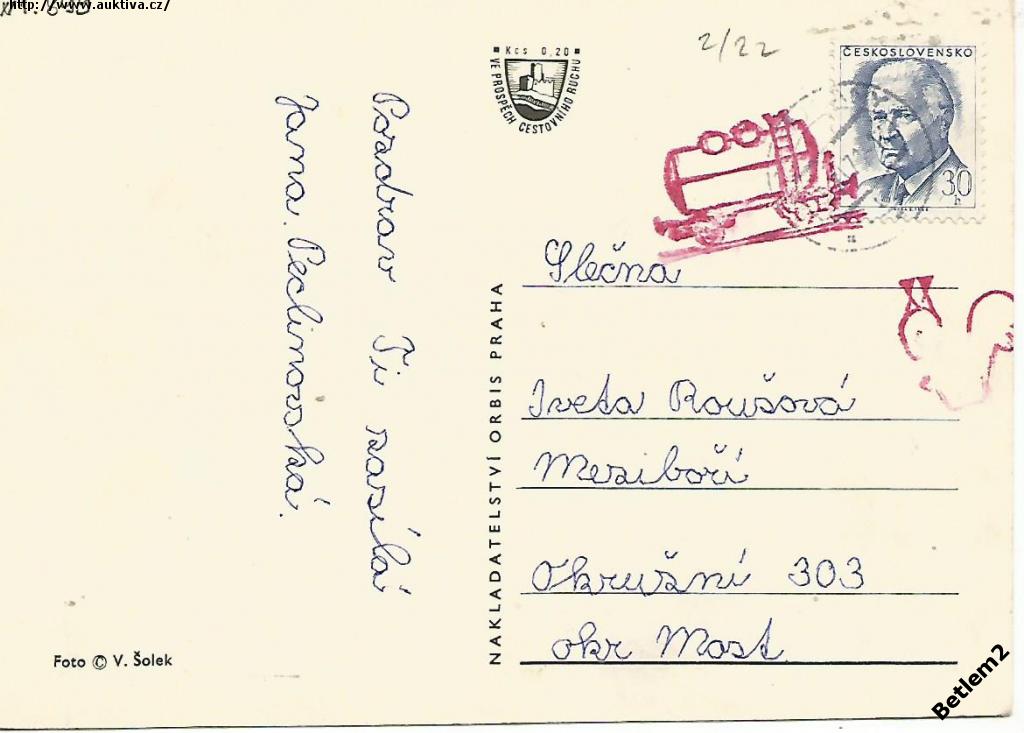 http://www.auktiva.cz/
2/22
Kčs 0,20
VE PROSPĚCH CESTOVNÍHO RUCHU
ČESKOSLOVENSKO
30
h
Pozdrav Ti zasílá
Jana Peclinovská.
NAKLADATELSTVÍ ORBIS PRAHA
Slečna
Iveta Roušová
Meziboří
Okružní 303
okr Most
Foto © V. Šolek
Betlem2